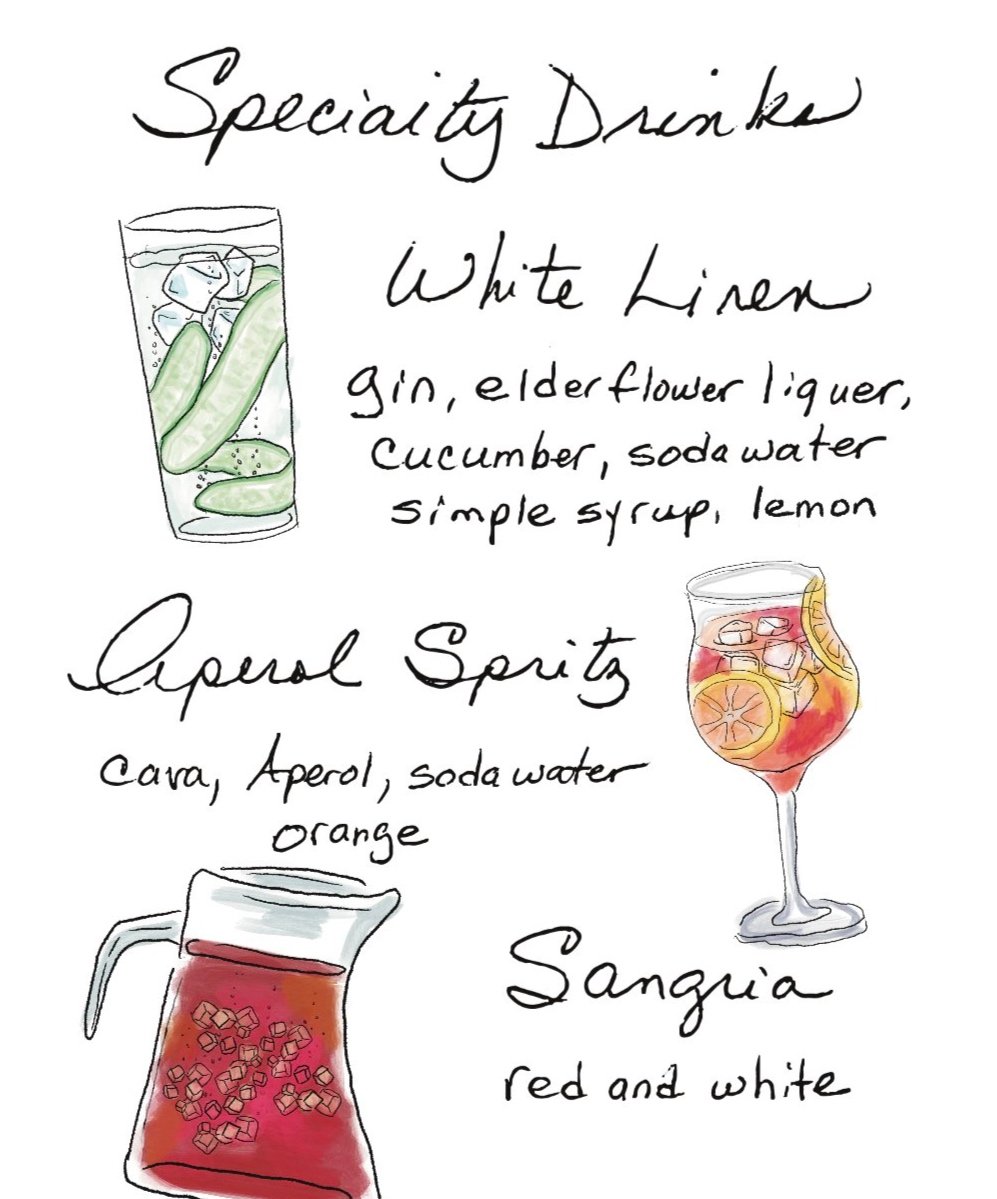 Speciaity Drinks
White Linen
gin, elderflower liquer,
cucumber, soda water
simple syrup, lemon
Aperol Spritz
cava, Aperol, soda water
orange
Sangria
red and white